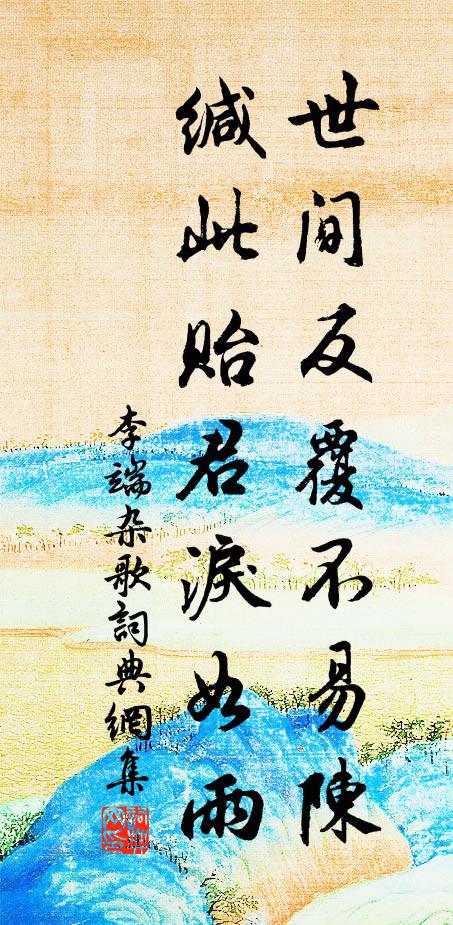 世间反覆不易陳
缄此贻君淚如雨
李端杂歌詞典網集